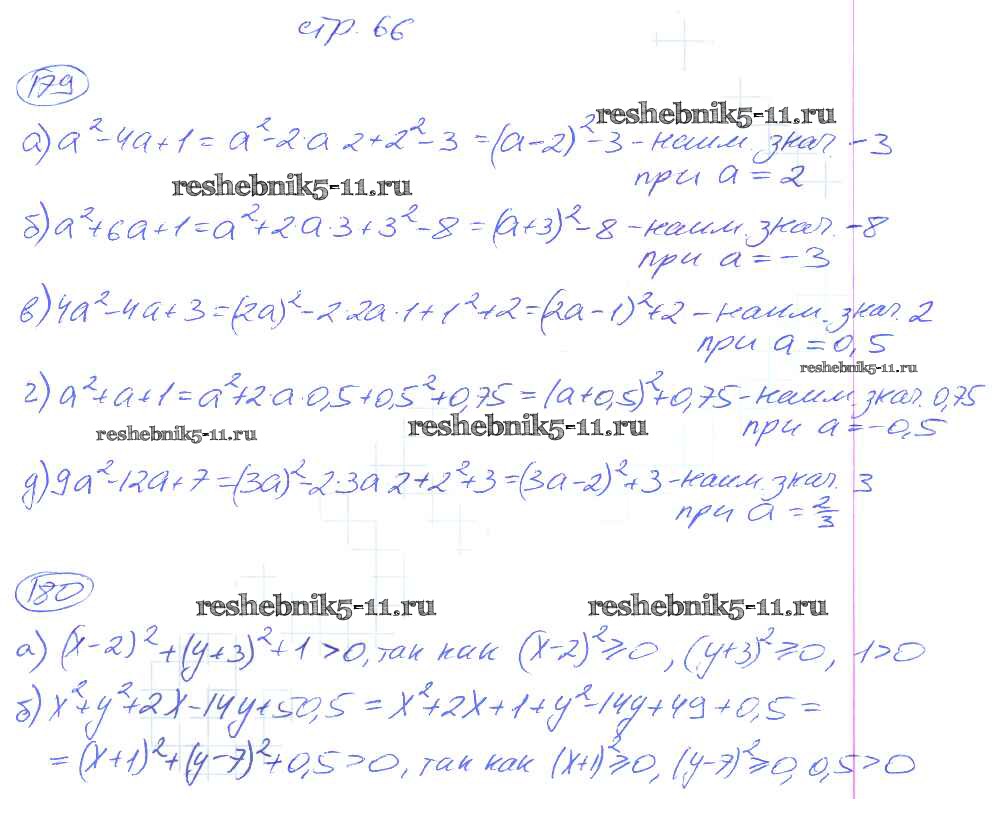 стр. 66
179
reshebnik5-11.ru
а) a²-4a+1 = a²-2·a 2+2²-3 = (a-2)²-3 - наим. знач. -3
reshebnik5-11.ru
при a = 2
б) a²+6a+1 = a²+2·a·3+3²-8 = (a+3)²-8 - наим. знач. -8
при a = -3
в) 4a²-4a+3 = (2a)²-2·2a·1+1²+2 = (2a-1)²+2 - наим. знач. 2
при a = 0,5
reshebnik5-11.ru
г) a²+a+1 = a²+2·a·0,5+0,5²+0,75 = (a+0,5)²+0,75 - наим. знач. 0,75
reshebnik5-11.ru reshebnik5-11.ru
при a = -0,5
д) 9a²-12a+7 = (3a)²-2·3a 2+2²+3 = (3a-2)²+3 - наим. знач. 3
при a = 2/3
180
reshebnik5-11.ru reshebnik5-11.ru
а) (x-2)²+(y+3)²+1>0, так как (x-2)²≥0, (y+3)²≥0, 1>0
б) x²+y²+2x-14y+50,5 = x²+2x+1+y²-14y+49+0,5 =
= (x+1)²+(y-7)²+0,5>0, так как (x+1)²≥0, (y-7)²≥0, 0,5>0